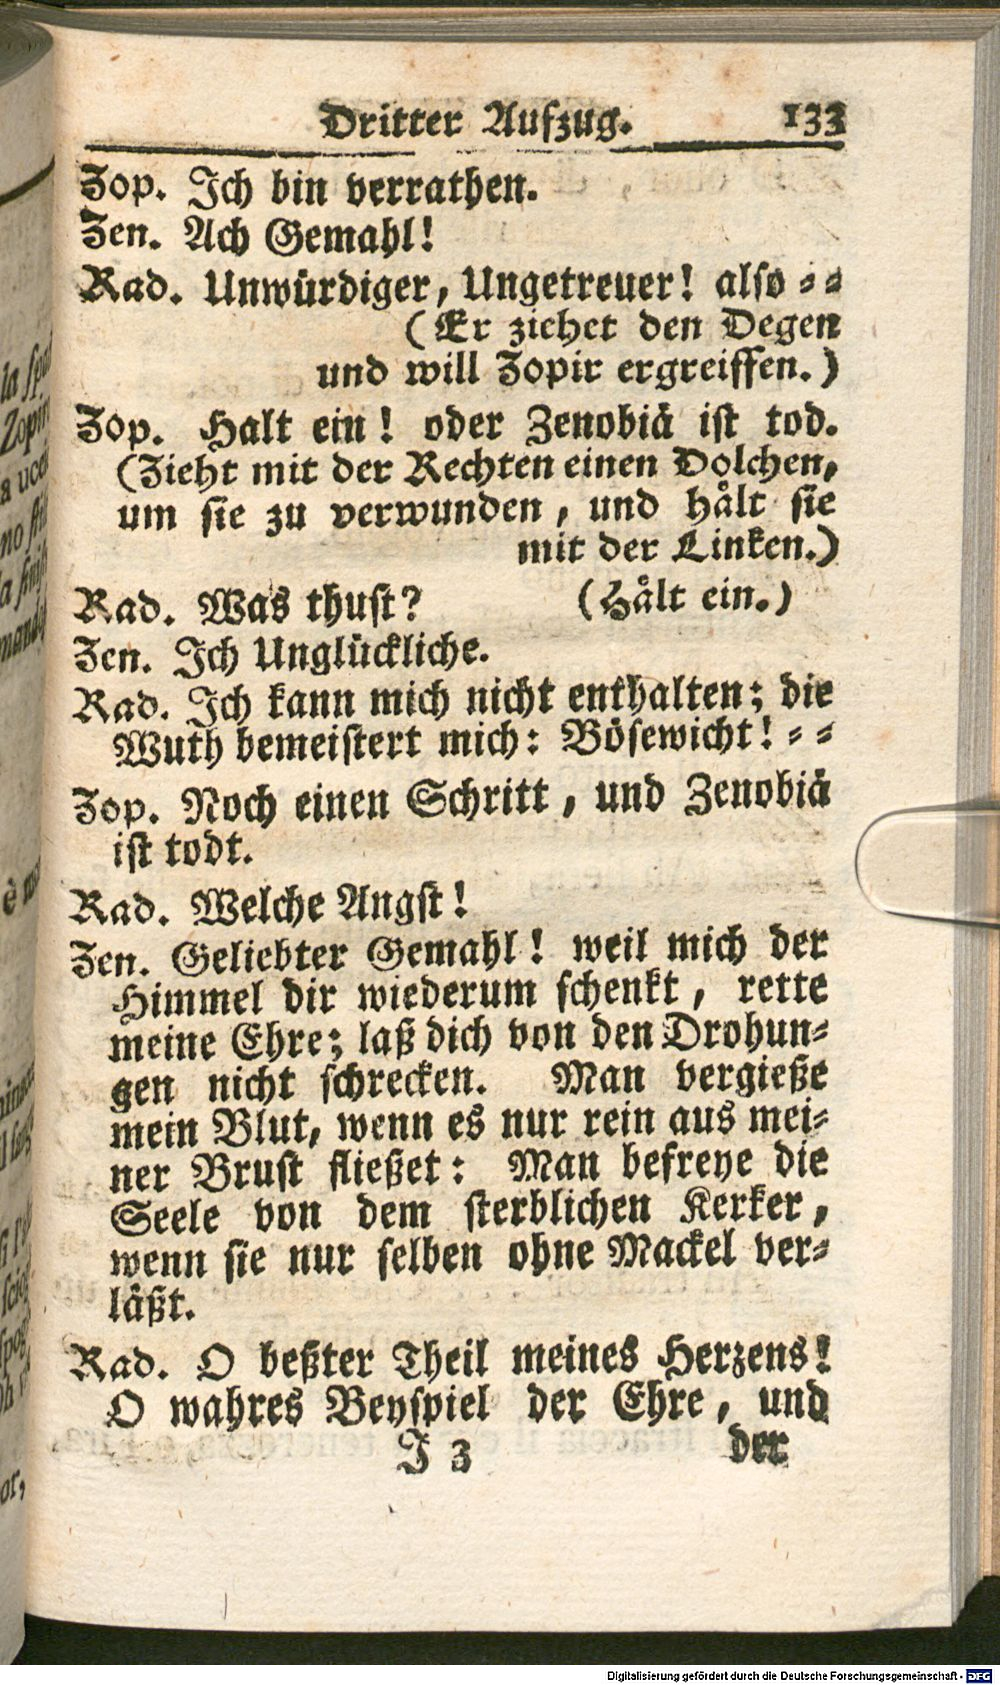 Dritter Aufzug. 133
Zop. Ich bin verrathen.
Zen. Ach Gemahl!
Rad. Unwürdiger, Ungetreuer! also = =
(Er ziehet den Degen
und will Zopir ergreiffen.)
Zop. Halt ein! oder Zenobiä ist tod.
(Zieht mit der Rechten einen Dolchen,
um sie zu verwunden, und hålt sie
mit der Linken.)
Rad. Was thust? (Hålt ein.)
Zen. Ich Unglückliche.
Rad. Ich kann mich nicht enthalten; die
Wuth bemeistert mich: Bösewicht! = =
Zop. Noch einen Schritt, und Zenobiä
ist todt.
Rad. Welche Angst!
Zen. Geliebter Gemahl! weil mich der
Himmel dir wiederum schenkt, rette
meine Ehre; laß dich von den Drohun=
gen nicht schrecken. Man vergieße
mein Blut, wenn es nur rein aus mei=
ner Brust fließet: Man befreye die
Seele von dem sterblichen Kerker,
wenn sie nur selben ohne Mackel ver=
läßt.
Rad. O beßter Theil meines Herzens!
O wahres Beyspiel der Ehre, und
I 3 der
Digitalisierung gefördert durch die Deutsche Forschungsgemeinschaft - DFG